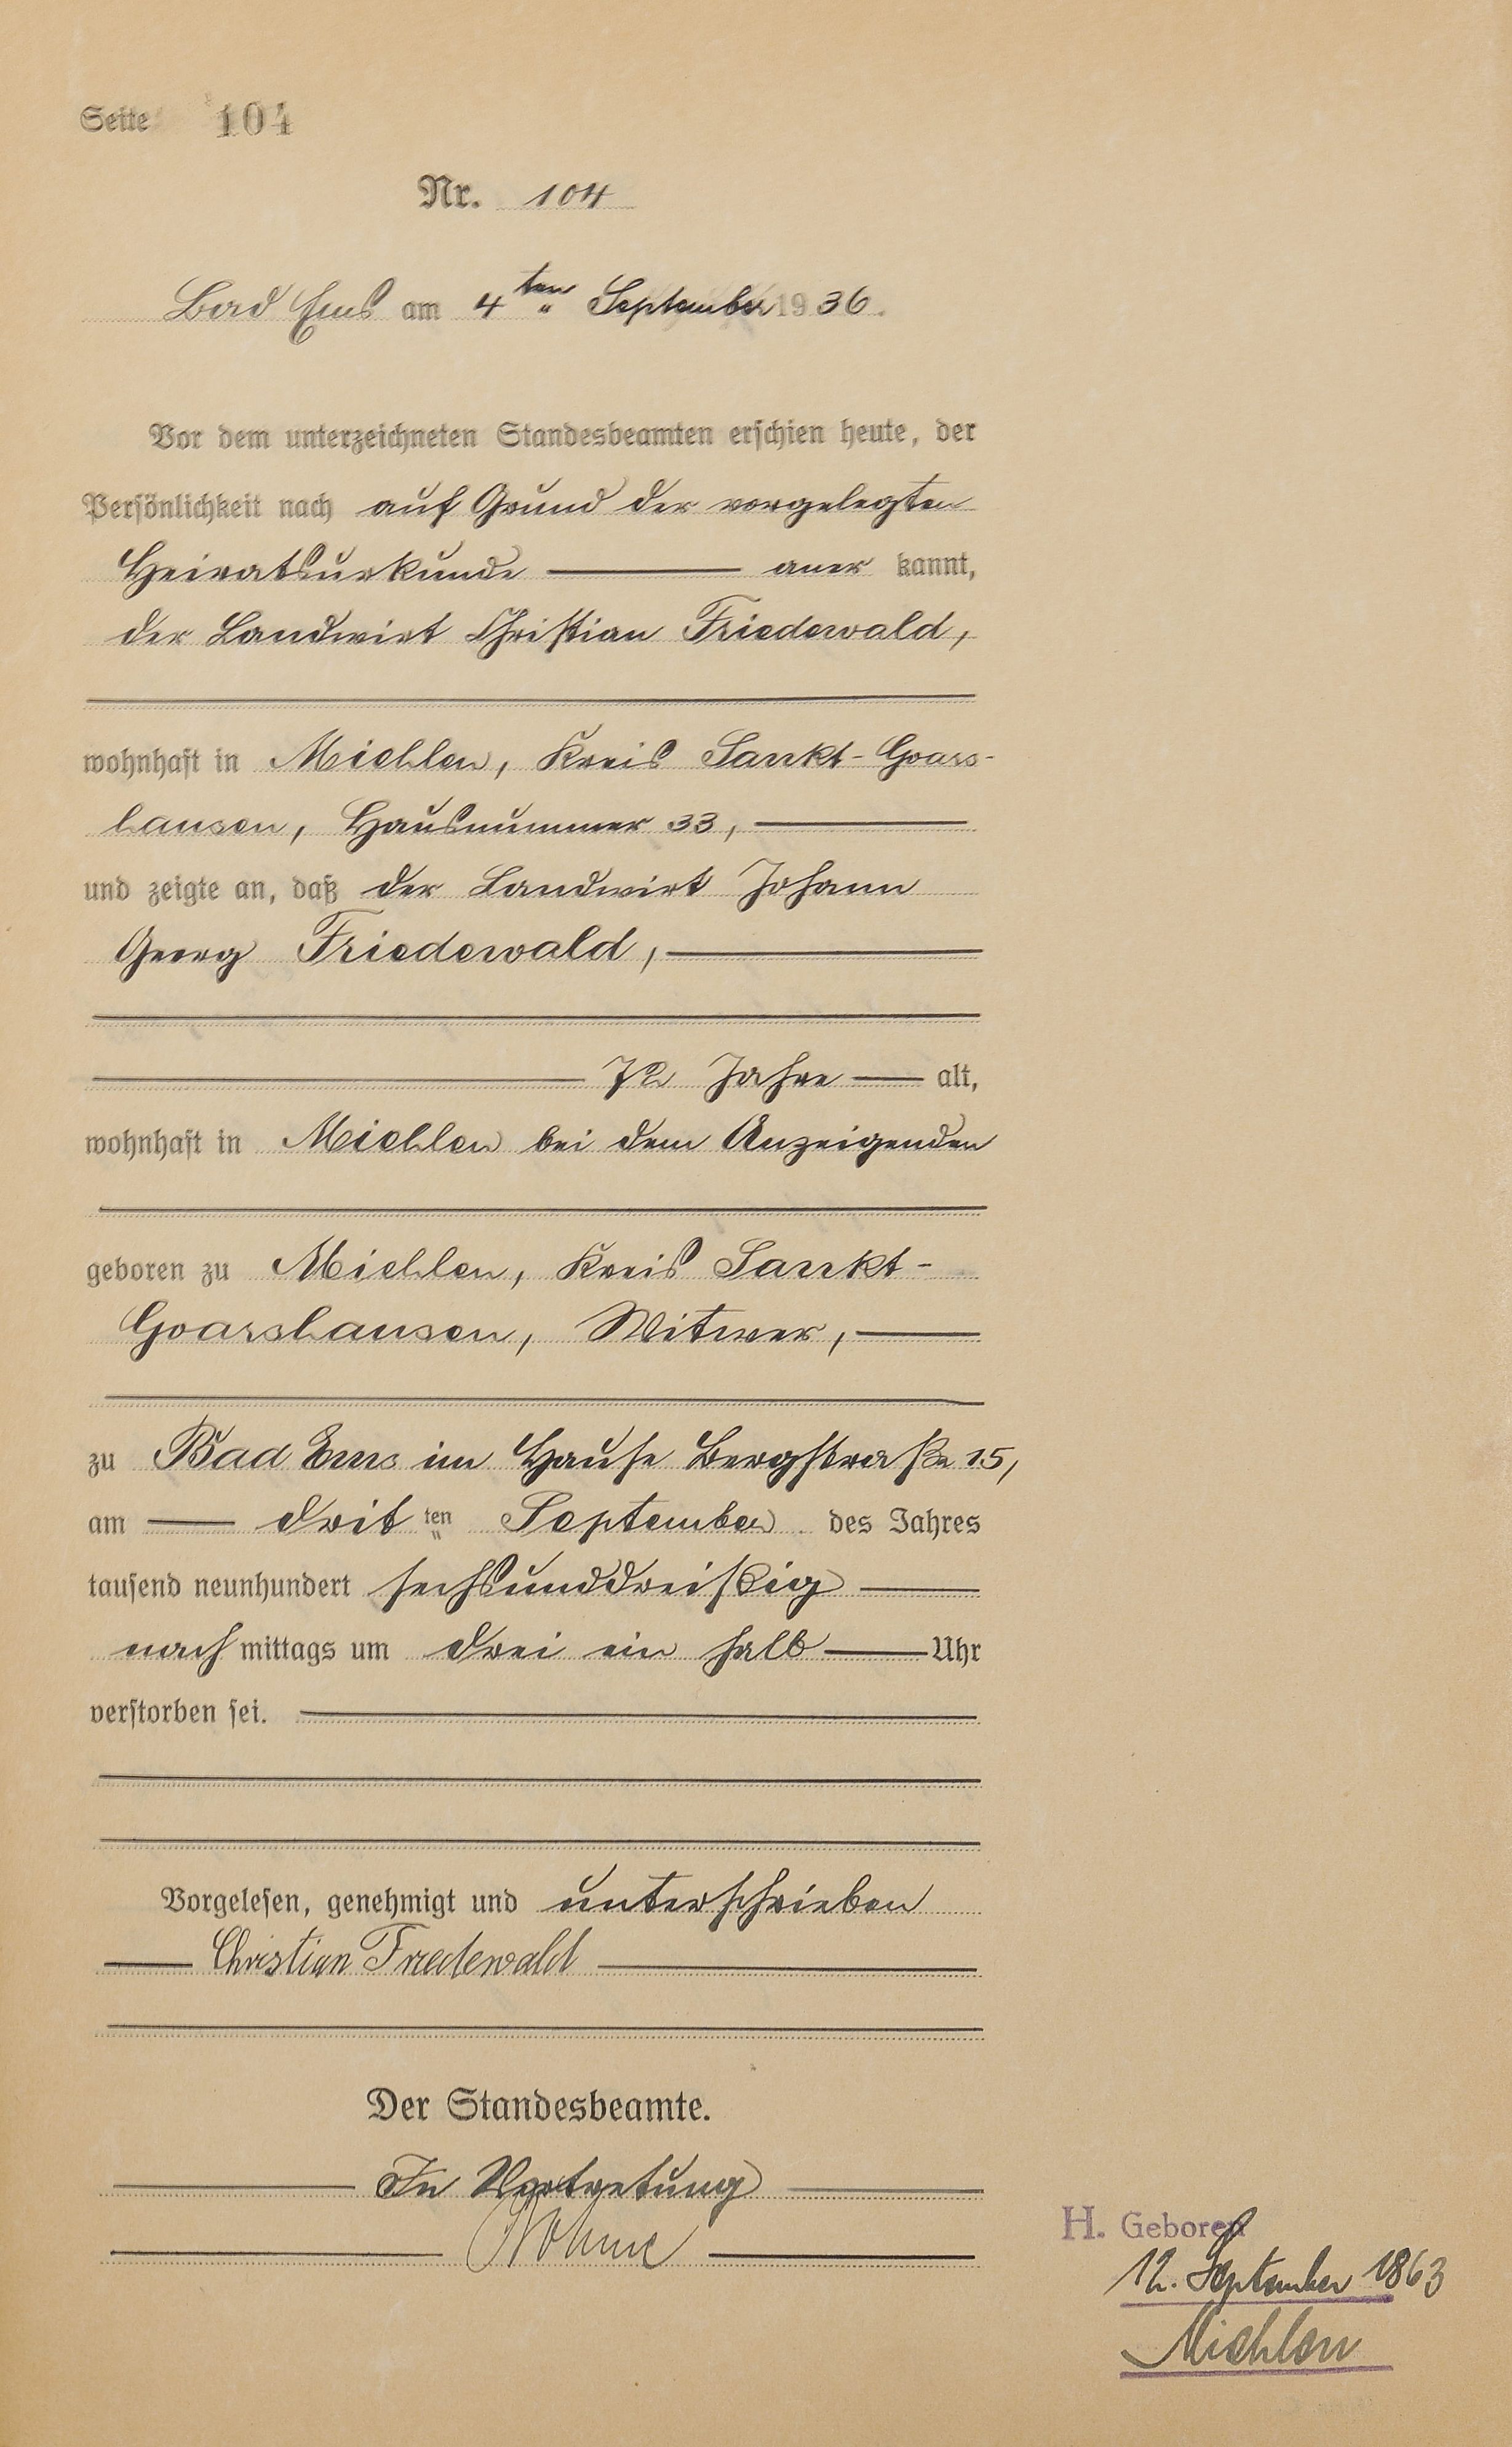 Seite 104
Nr. 104
Bad Ems am 4ten September 1936.
Vor dem unterzeichneten Standesbeamten erschien heute, der
Persönlichkeit nach auf Grund der vorgelegten
Heiratsurkunde aner kannt,
der Landwirt Christian Friedewald,
wohnhaft in Miehlen, Kreis Sankt-Goars-
hausen, Hausnummer 33,
und zeigte an, daß der Landwirt Johann
Georg Friedewald,
72 Jahre alt,
wohnhaft in Miehlen bei dem Anzeigenden
geboren zu Miehlen, Kreis Sankt-
Goarshausen, Witwer,
zu Bad Ems im Hause Bergstraße 15,
am dritten September des Jahres
tausend neunhundert sechsunddreißig
nach mittags um drei ein halb Uhr
verstorben sei.
Vorgelesen, genehmigt und unterschrieben
Christian Friedewald
Der Standesbeamte.
In Vertretung
H. Geboren
12. September 1863
Miehlen